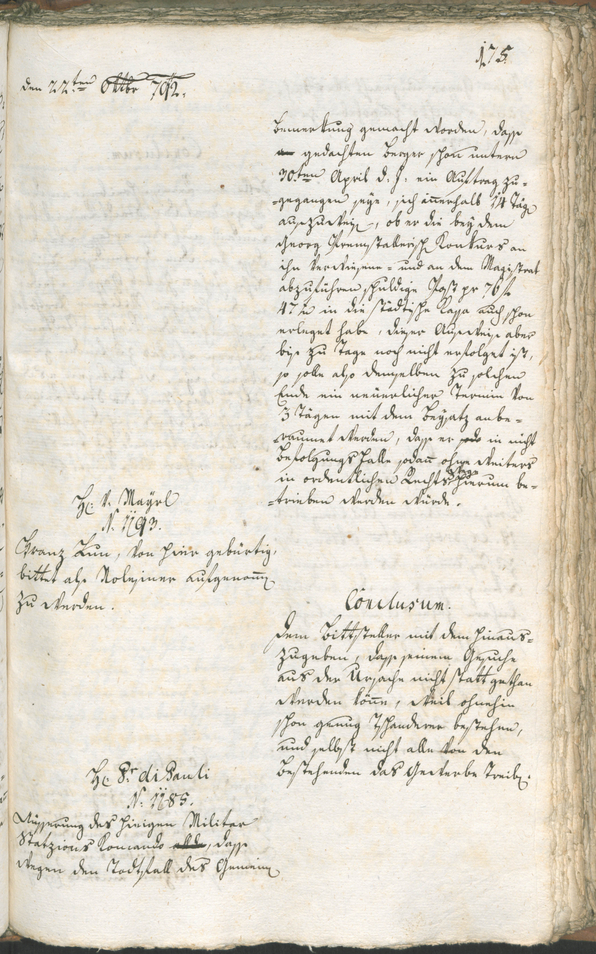 175.
den 22ten Oktbr 792.
bemerkung gemacht worden, dass
gedachten Berger schon unterm
30ten April d. J. ein Auftrag zu-
gegangen seye, sich innerhalb 14 Täg
auszuweisen, ob er die bey dem
Georg Premstallerisch Konkurs an
ihn verwiesene- und an dem Magistrat
abzuführen schuldige Post pr 76 f
47 x in die städtische Kassa auch schon
erleget habe, dieser Ausweise aber
bis zu Tage noch nicht erfolget ist,
so solle also demselben zu solchen
Ende ein neuerlicher Termin von
3 Tägen mit dem Beysatz anbe-
raumet werden, dass er in nicht
Befolgungs Falle sodann ohne weiters
in ordentlichen Rechts hierum be-
trieben werden würde.
H. v. Mayrl
N. 1193.
Franz Lun, von hier gebürtig,
bittet als aufgenomm
zu werden.
Conclusum.
Dem Bittsteller mit dem hinaus-
zugeben, dass seinem Gesuche
aus der Ursache nicht statt gethan
werden könne, weil ohnehin
schon genug bestehen,
und selbst nicht alle von den
bestehenden das Gewerbe treiben.
H. Dr. di Pauli
N. 1185.
Äusserung des hiesigen Militar
Stazions Komando, dass
wegen den Todtfall des Gemein